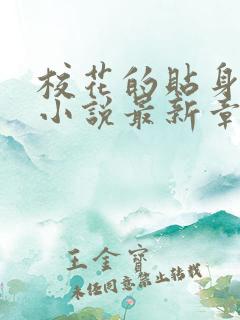 校花的貼身
小說最新章
王金寶
未经同意禁止转载